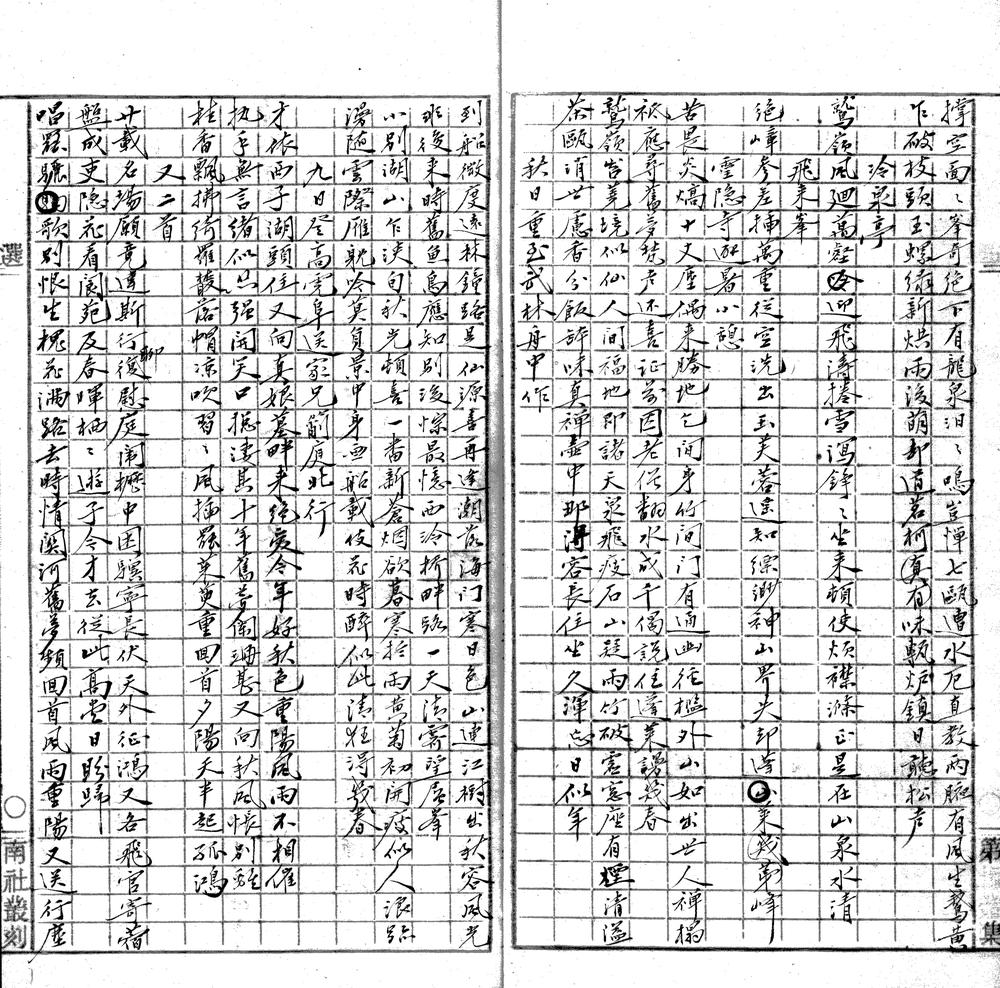 撐空面〻峯奇絕下有龍泉汩〻鳴豈憚七甌遭水厄直教兩腋有風生鶖黄
乍破枝頭玉螺綠新烘雨後萌却道茗柯真有味甎炉鎮日聽松声
冷泉亭
鷲嶺風廻萬壑迎飛濤捲雪瀉錚〻坐来頓使煩襟滌正是在山泉水清
飛来峯
絕嶂參差插萬重從空洗出玉芙蓉遠知縹緲神山界失却蓬萊第峰
靈隱寺避暑小憩
苦是炎熇十丈塵偶来勝地乞閒身竹間门有通幽徑檻外山如出世人禅榻
祇應尋舊夢梵声还喜证前因老僧翻水成千偈說住蓬莱幾春
鷲嶺岧嶤境似仙人間福地即諸天泉飛疑石山疑雨竹破雲窓座有煙清溢
茶甌消世慮香分飯鉢味真禅壷中那得容長住坐久渾忘日似年
秋日重至武林舟中作
到船微度遠林鐘路是仙源喜再逢潮落海门寒日色山連江樹出秋容風光
非後来時舊魚鳥應知別後悰最憶西泠橋畔路一天清霽望层峯
小別湖山乍浹旬秋光頓喜一番新蒼烟欲暮寒於雨黄菊初開瘦似人浪跡
漫随雲際雁躭吟莫負景中身画船載伎花時醉似此清狂得幾春
九日登高完阜送家兄蔚庭北行
才依西子湖頭住又向真娘墓畔来絕愛今年好秋色重陽風雨不相催
执手無言緒似强開笑口搃凄其十年舊夢闹珊甚又向秋風悵別離
桂香飄拂绮羅叢落帽凉吹習〻風插罷茱萸重回首夕陽天半起孤鴻
又二首
廿載名場願竟違斯行聊復慰庭闱櫪中困驥寧長伏天外征鴻又各飛官寄蒼
盤成吏隐花看阆苑及春暉栖〻遊子今才去從此高堂日盼歸
唱罷驪歌別恨生槐花满路去時情関河舊夢頻回首風雨重陽又送行塵
選
南社叢刻
第
集